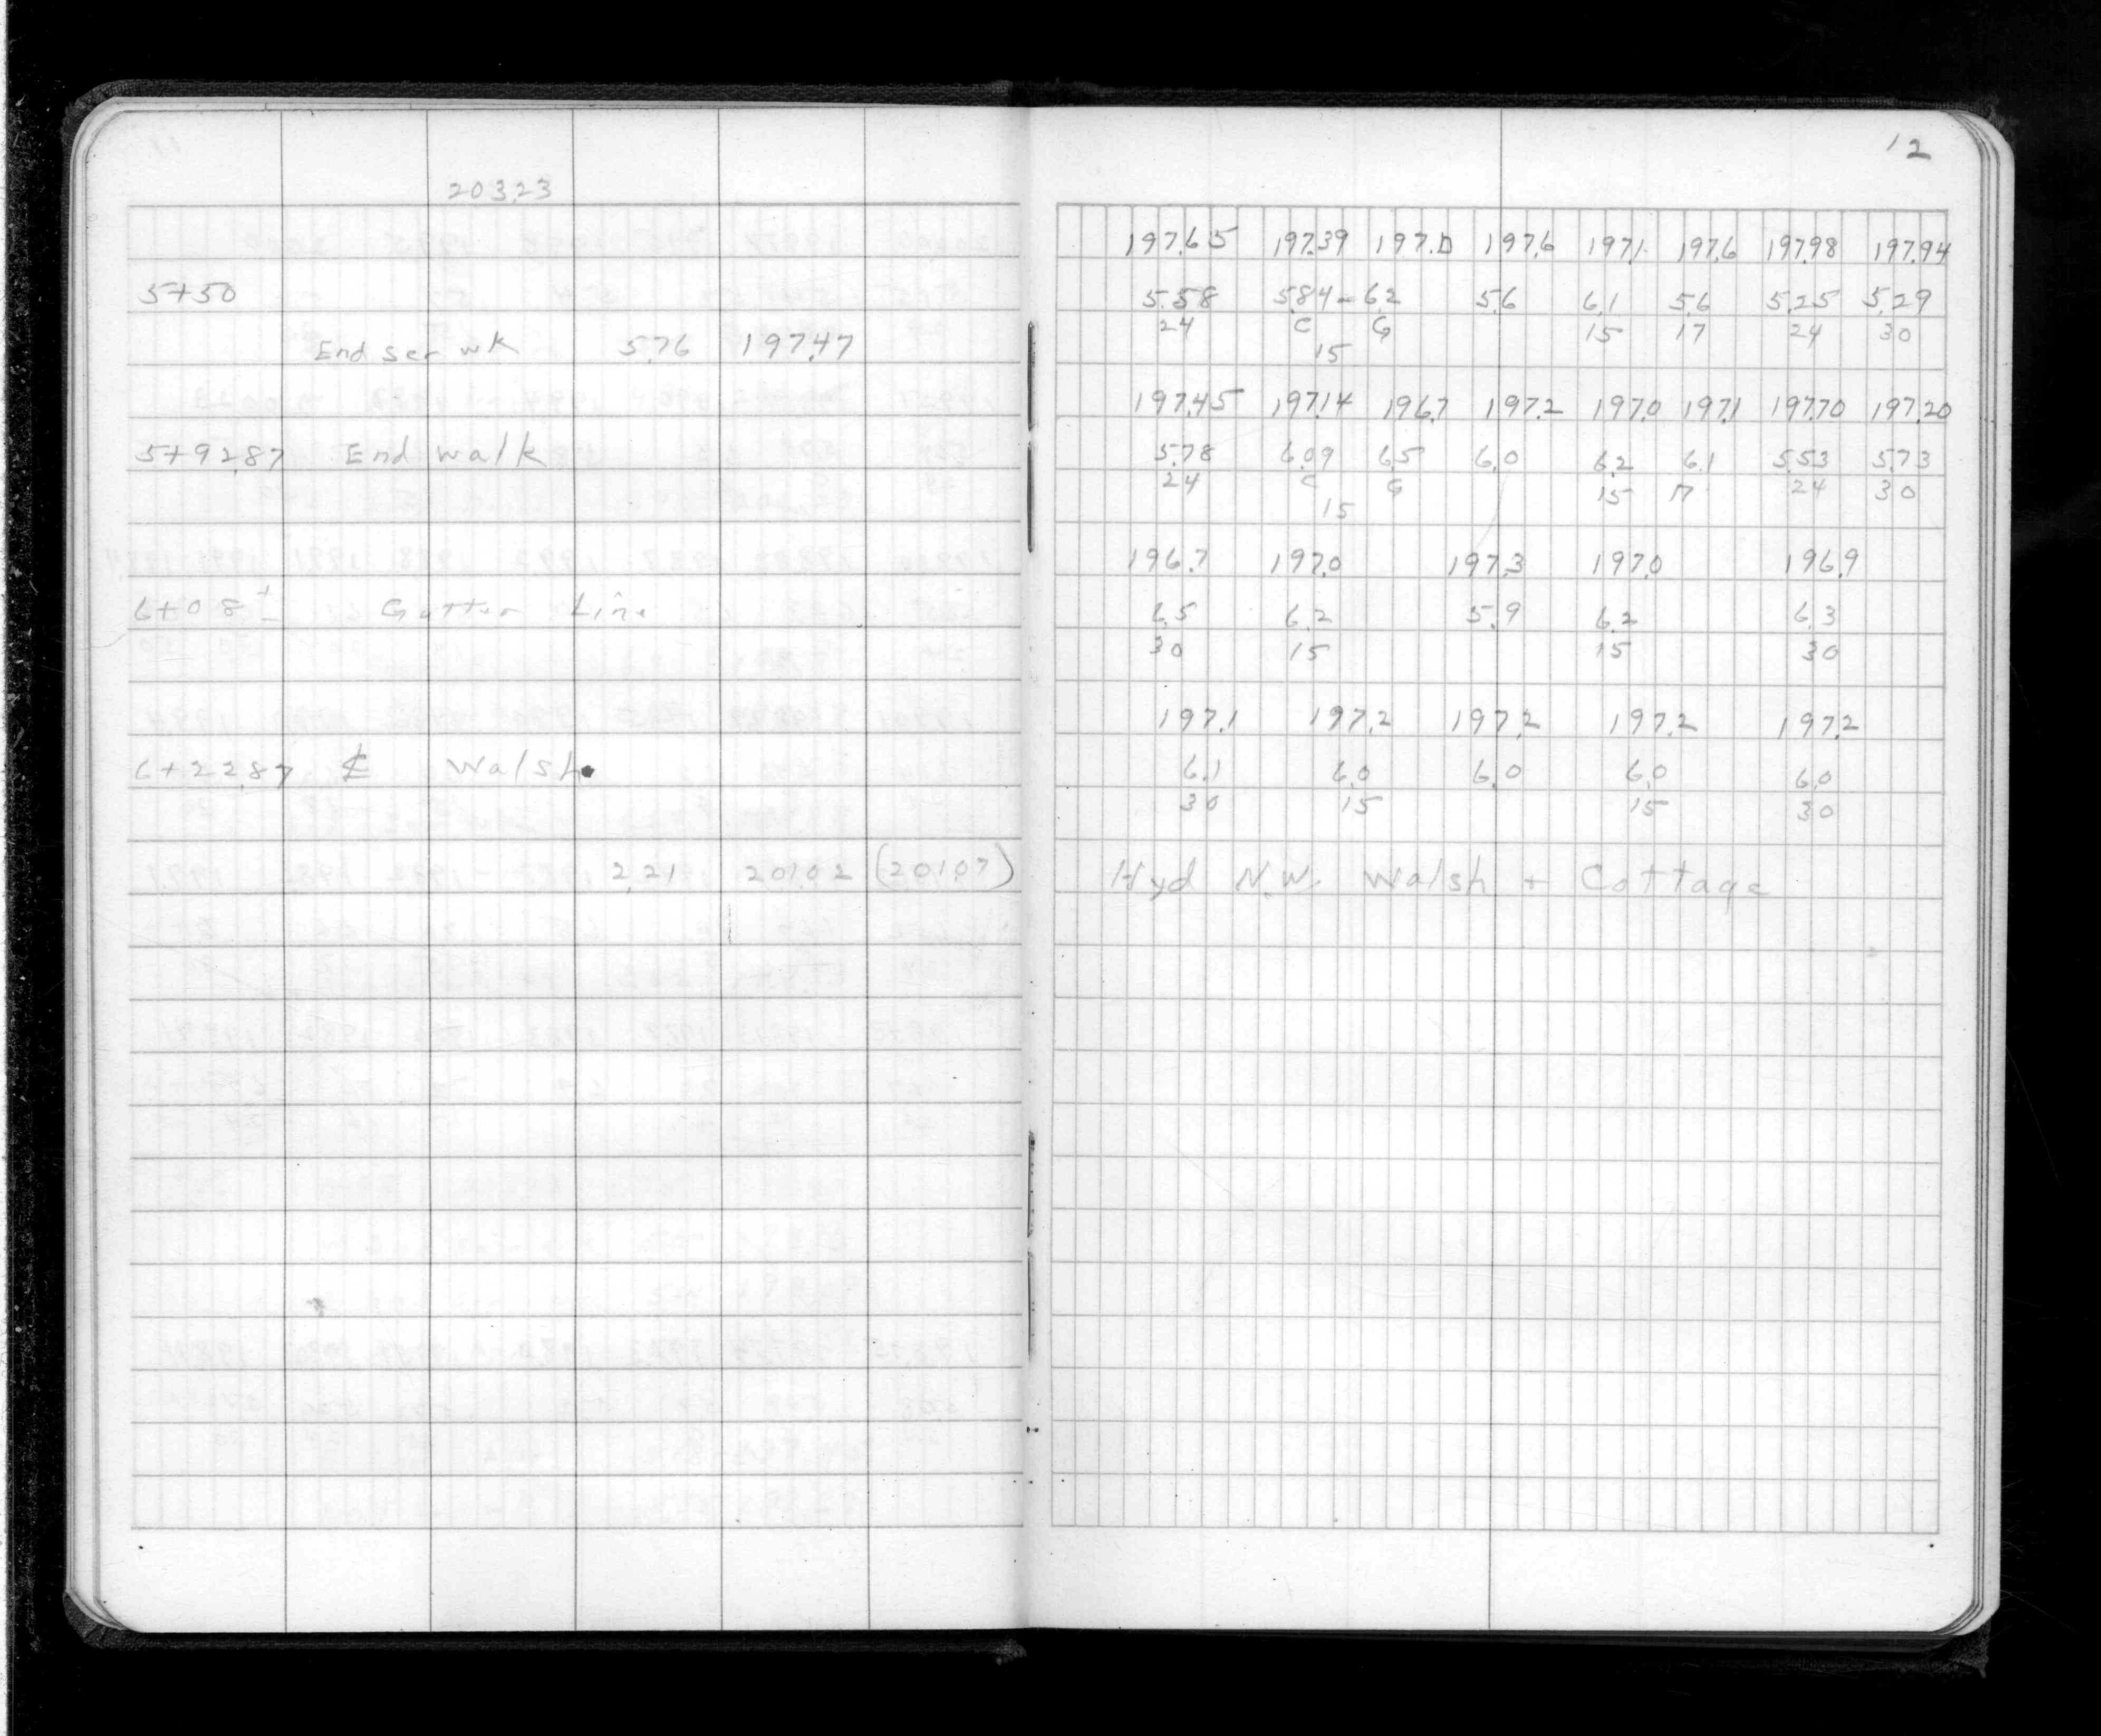 12
203.23
197.65 197.39 197.0 197.6 197.1 197.6 197.98 197.94
5+50 5.58 5.84 - 6.2 5.6 6.1 5.6 5.25 5.29
24 C G 15 17 24 30
End ser wk 5.76 197.47 15
197.45 197.14 196.7 197.2 197.0 197.1 197.70 197.20
5+92.87 End walk 5.78 6.09 6.5 6.0 6.2 6.1 5.53 5.73
24 C G 15 17 24 30
15
196.7 197.0 197.3 197.0 196.9
6+08± Gutter Line 6.5 6.2 5.9 6.2 6.3
30 15 15 30
197.1 197.2 197.2 197.2 197.2
6+22.87 ℄ Walsh 6.1 6.0 6.0 6.0 6.0
30 15 15 30
2.21 201.02 (201.07) Hyd N.W. Walsh + Cottage